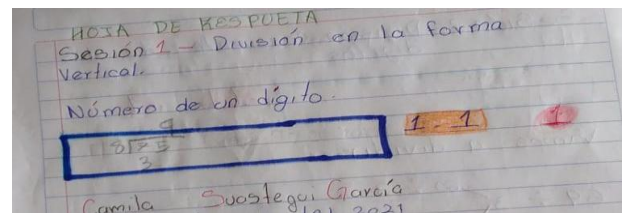 HOJA DE RESPUETA
Sesión 1 - División en la forma
Vertical.
Número de un dígito.
9
8√75
3
1.1
1
Camila Suastegui García
2021